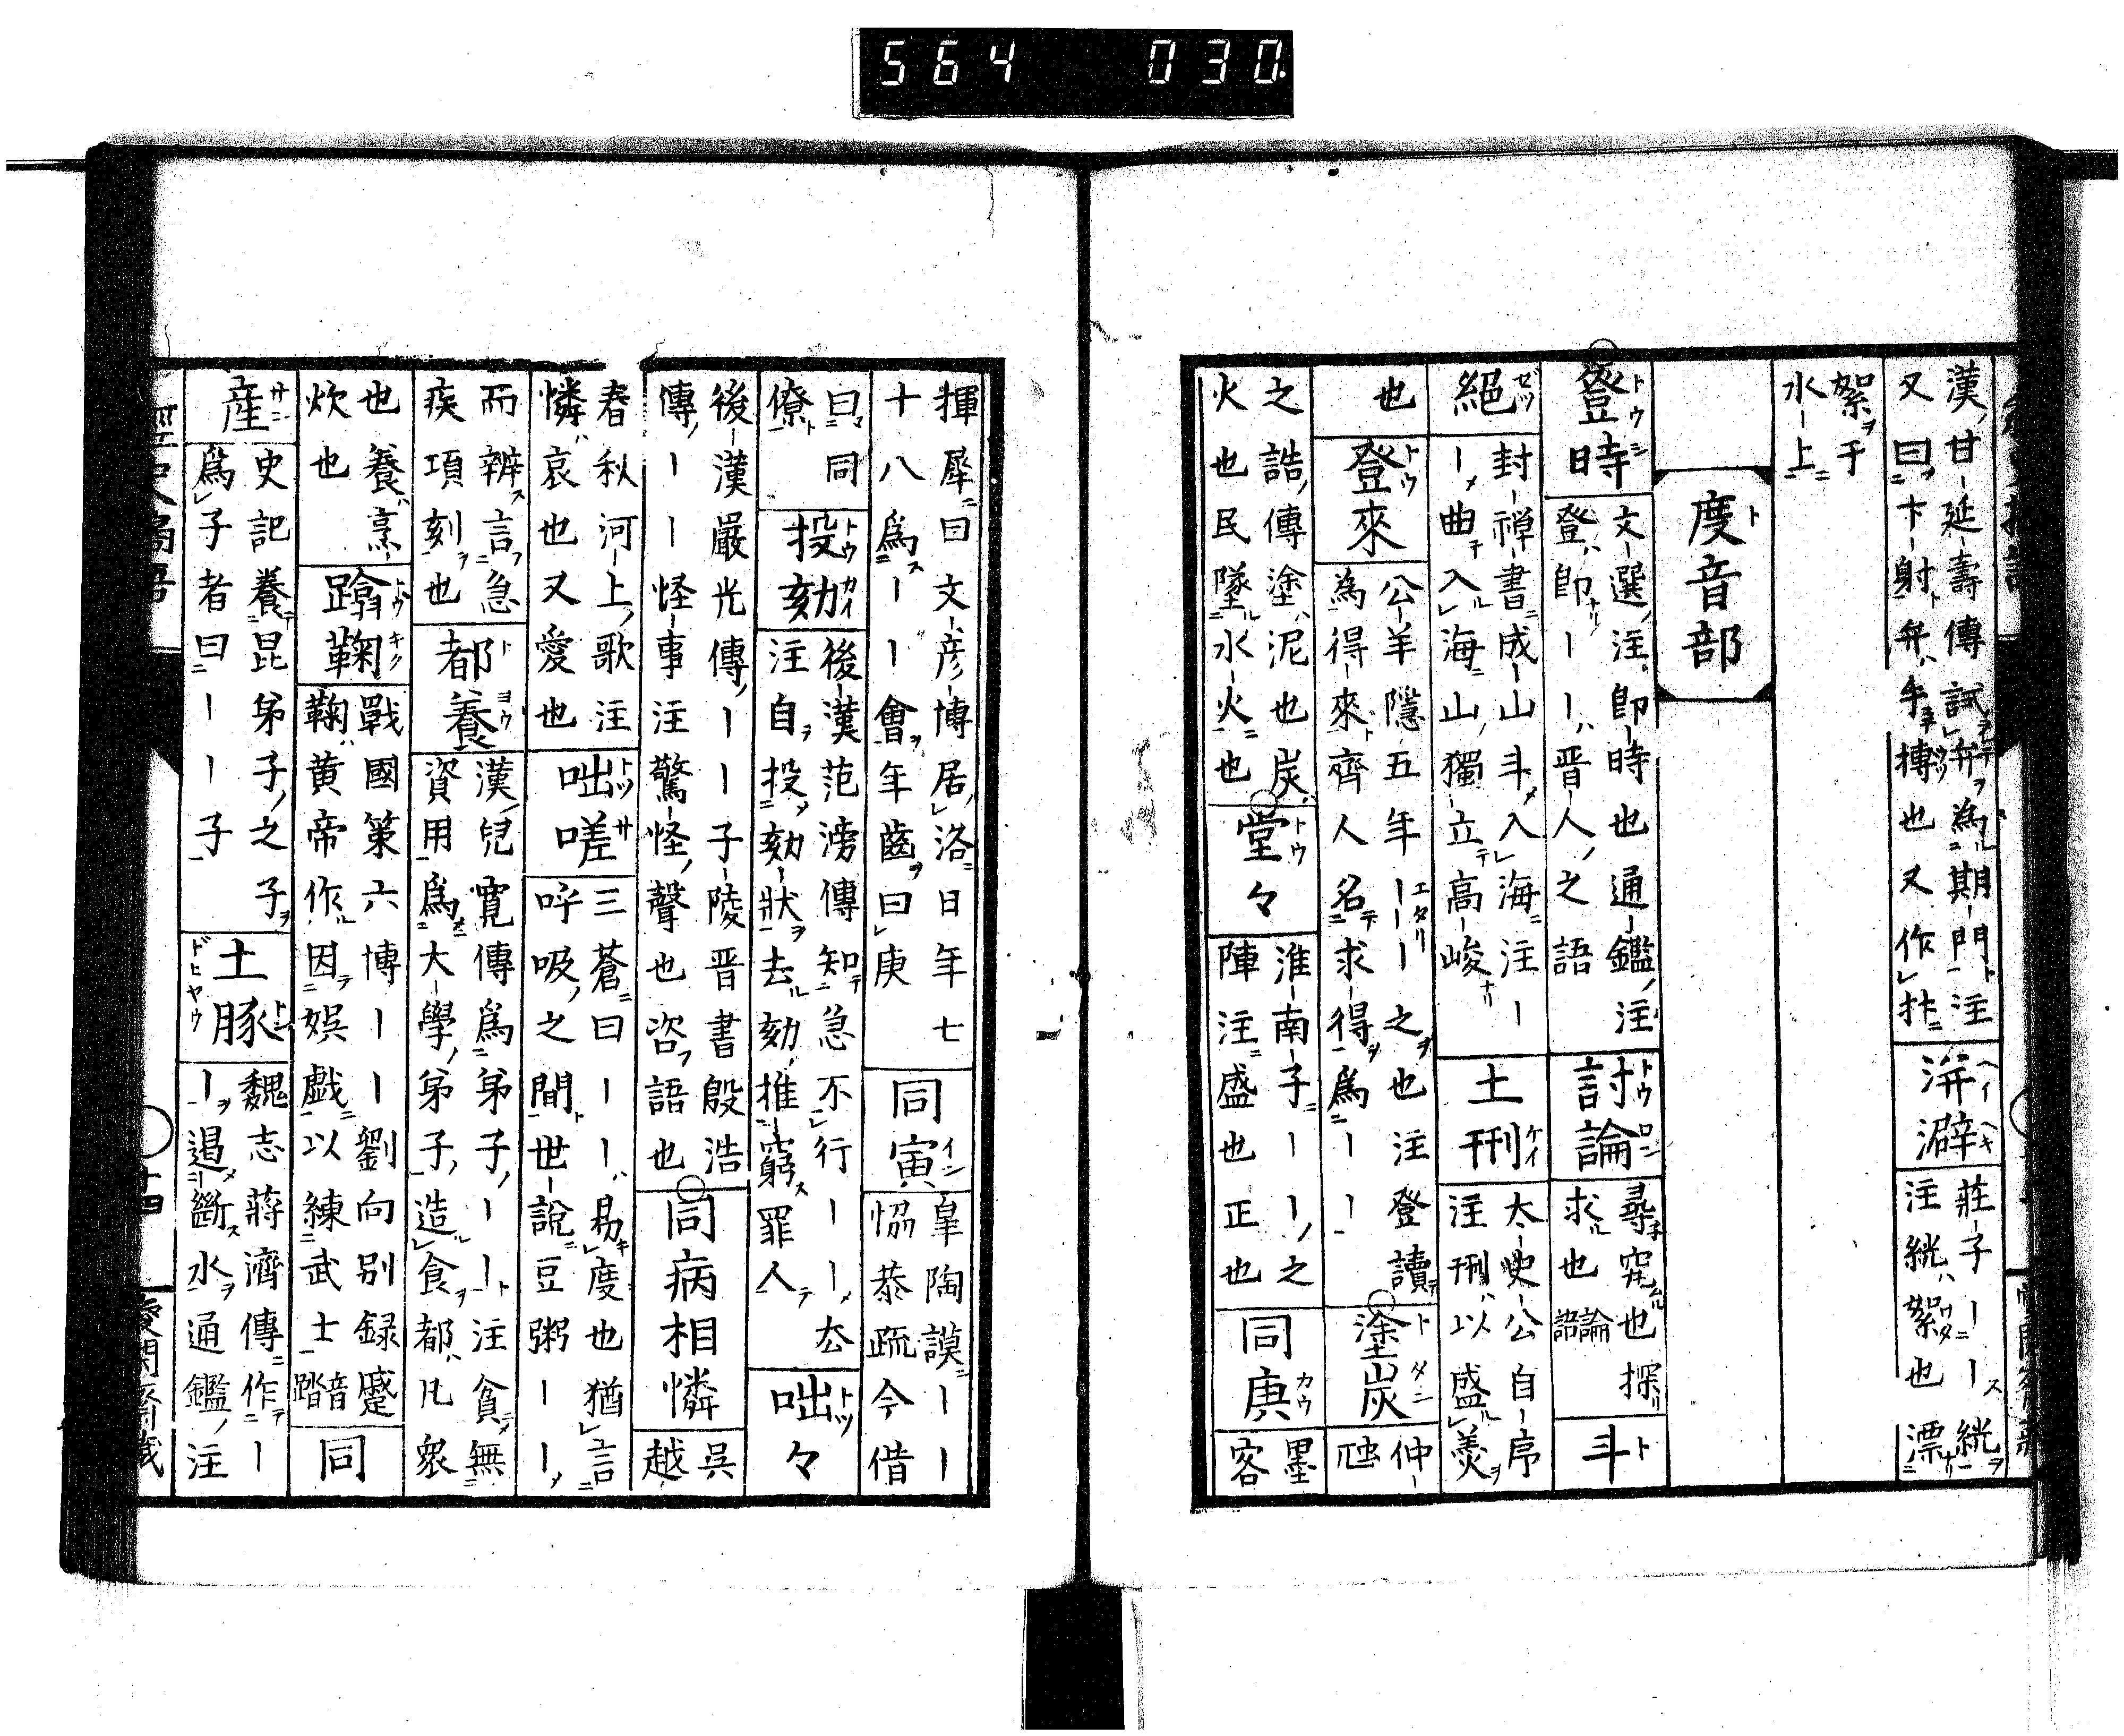 564 030
漢ノ甘延壽傳試弁為期門注
又曰卞射弁手搏也又作抃
洴澼
莊子ーー絖
注絖絮也漂
絮ヲ于
水上ニ
度音部
登時
文選ノ注即時也通鑑ノ注
登即ーー晋人ノ之語
討論
尋究也探
求也論語
斗
絕
封禅書成山斗入海注ー
ーメ曲テ入海山ノ獨立高峻
土刑
太史公自序
注刑以盛羮
也
登來
公羊隱五年ーーー之也注登讀
為得來齊人名求得為ーー
塗炭
仲
虺
之誥ノ傳塗泥也炭
火也民墜水火也
堂々
淮南子ーーノ之
陣注盛也正也
同庚
墨
客
揮犀曰文彦博居洛日年七
十八為ーー會年齒曰庚
同寅
皐陶謨ーー
恊恭疏今借
曰同
僚
投劾
後漢范滂傳知急不行ーー太
注自投劾狀去劾推窮罪人
咄々
後漢嚴光傳ノーー子陵晋書殷浩
傳ノーー怪事注驚怪ノ聲也咨語也
同病相憐
吳
越
春秋河上ノ歌注
憐哀也又愛也
咄嗟
三蒼曰ーー易度也猶言
呼吸ノ之間世說豆粥ーー
而辨言急
疾項刻也
都養
漢ノ兒寛傳為弟子ノーー注貪無
資用為大學ノ弟子ノ造食都凡衆
也養烹
炊也
蹹鞠
戰國策六博ーー劉向別録蹙
鞠黄帝作因娯戯以練武士蹹音
同
産
史記養昆弟子ノ之子
為子者曰ーーー子
土豚
魏志蔣濟傳作ー
ー遏斷水通鑑ノ注
十四